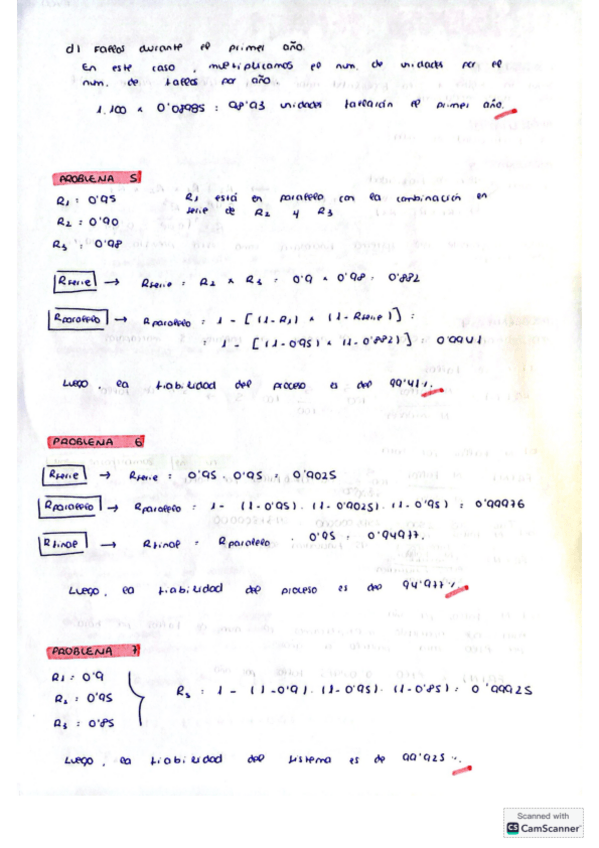 d) Fallos durante el primer año.
En este caso, multiplicamos el num. de unidades por el
num. de fallos por año
1.100 x 0'08985 = 98'93 unidades fallarán el primer año.
PROBLEMA 5
R1 = 0'95 R1 está en paralelo con la combinación en
R2 = 0'90 serie de R2 y R3
R3 = 0'98
Rserie → Rserie = R2 x R3 = 0'9 x 0'98 = 0'882
Rparalelo → Rparalelo = 1 - [(1-R1) x (1-Rserie)] =
= 1 - [(1-0'95) x (1-0'882)] = 0'9941
Luego, la fiabilidad del proceso es del 99'41%.
PROBLEMA 6
Rserie → Rserie = 0'95 . 0'95 = 0'9025
Rparalelo → Rparalelo = 1- (1-0'95) . (1-0'9025) . (1-0'95) = 0'99976
Rfinal → Rfinal = Rparalelo . 0'95 = 0'94977.
Luego, la fiabilidad del proceso es del 94'977%.
PROBLEMA 7
R1 = 0'9
R2 = 0'95 Rs = 1 - (1-0'9) . (1-0'95) . (1-0'85) = 0'99925
R3 = 0'85
Luego, la fiabilidad del sistema es de 99'925%.
Scanned with
CS CamScanner